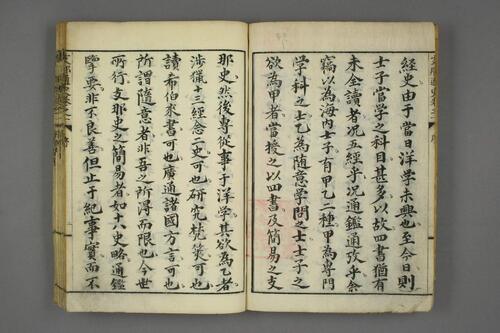 經史由于當日洋学未興也至今日則
士子當学之科目甚多以故四書猶有
未全讀者况五經乎况通鑑通攷乎余
竊以為海内士子有甲乙二種甲為專門
学科之士乙為随意学問之士士子之
欲為甲者當授之以四書及簡易之支
那史然後專從事于洋学其欲為乙者
涉獵十三經念二史可也研究梵筴可也
讀希伯来書可也廣通諸國方言可也
所謂随意者非吾之所得而限也今世
所行支那史之簡易者如十八史略通鑑
擥要非不良善但止于紀事實而不